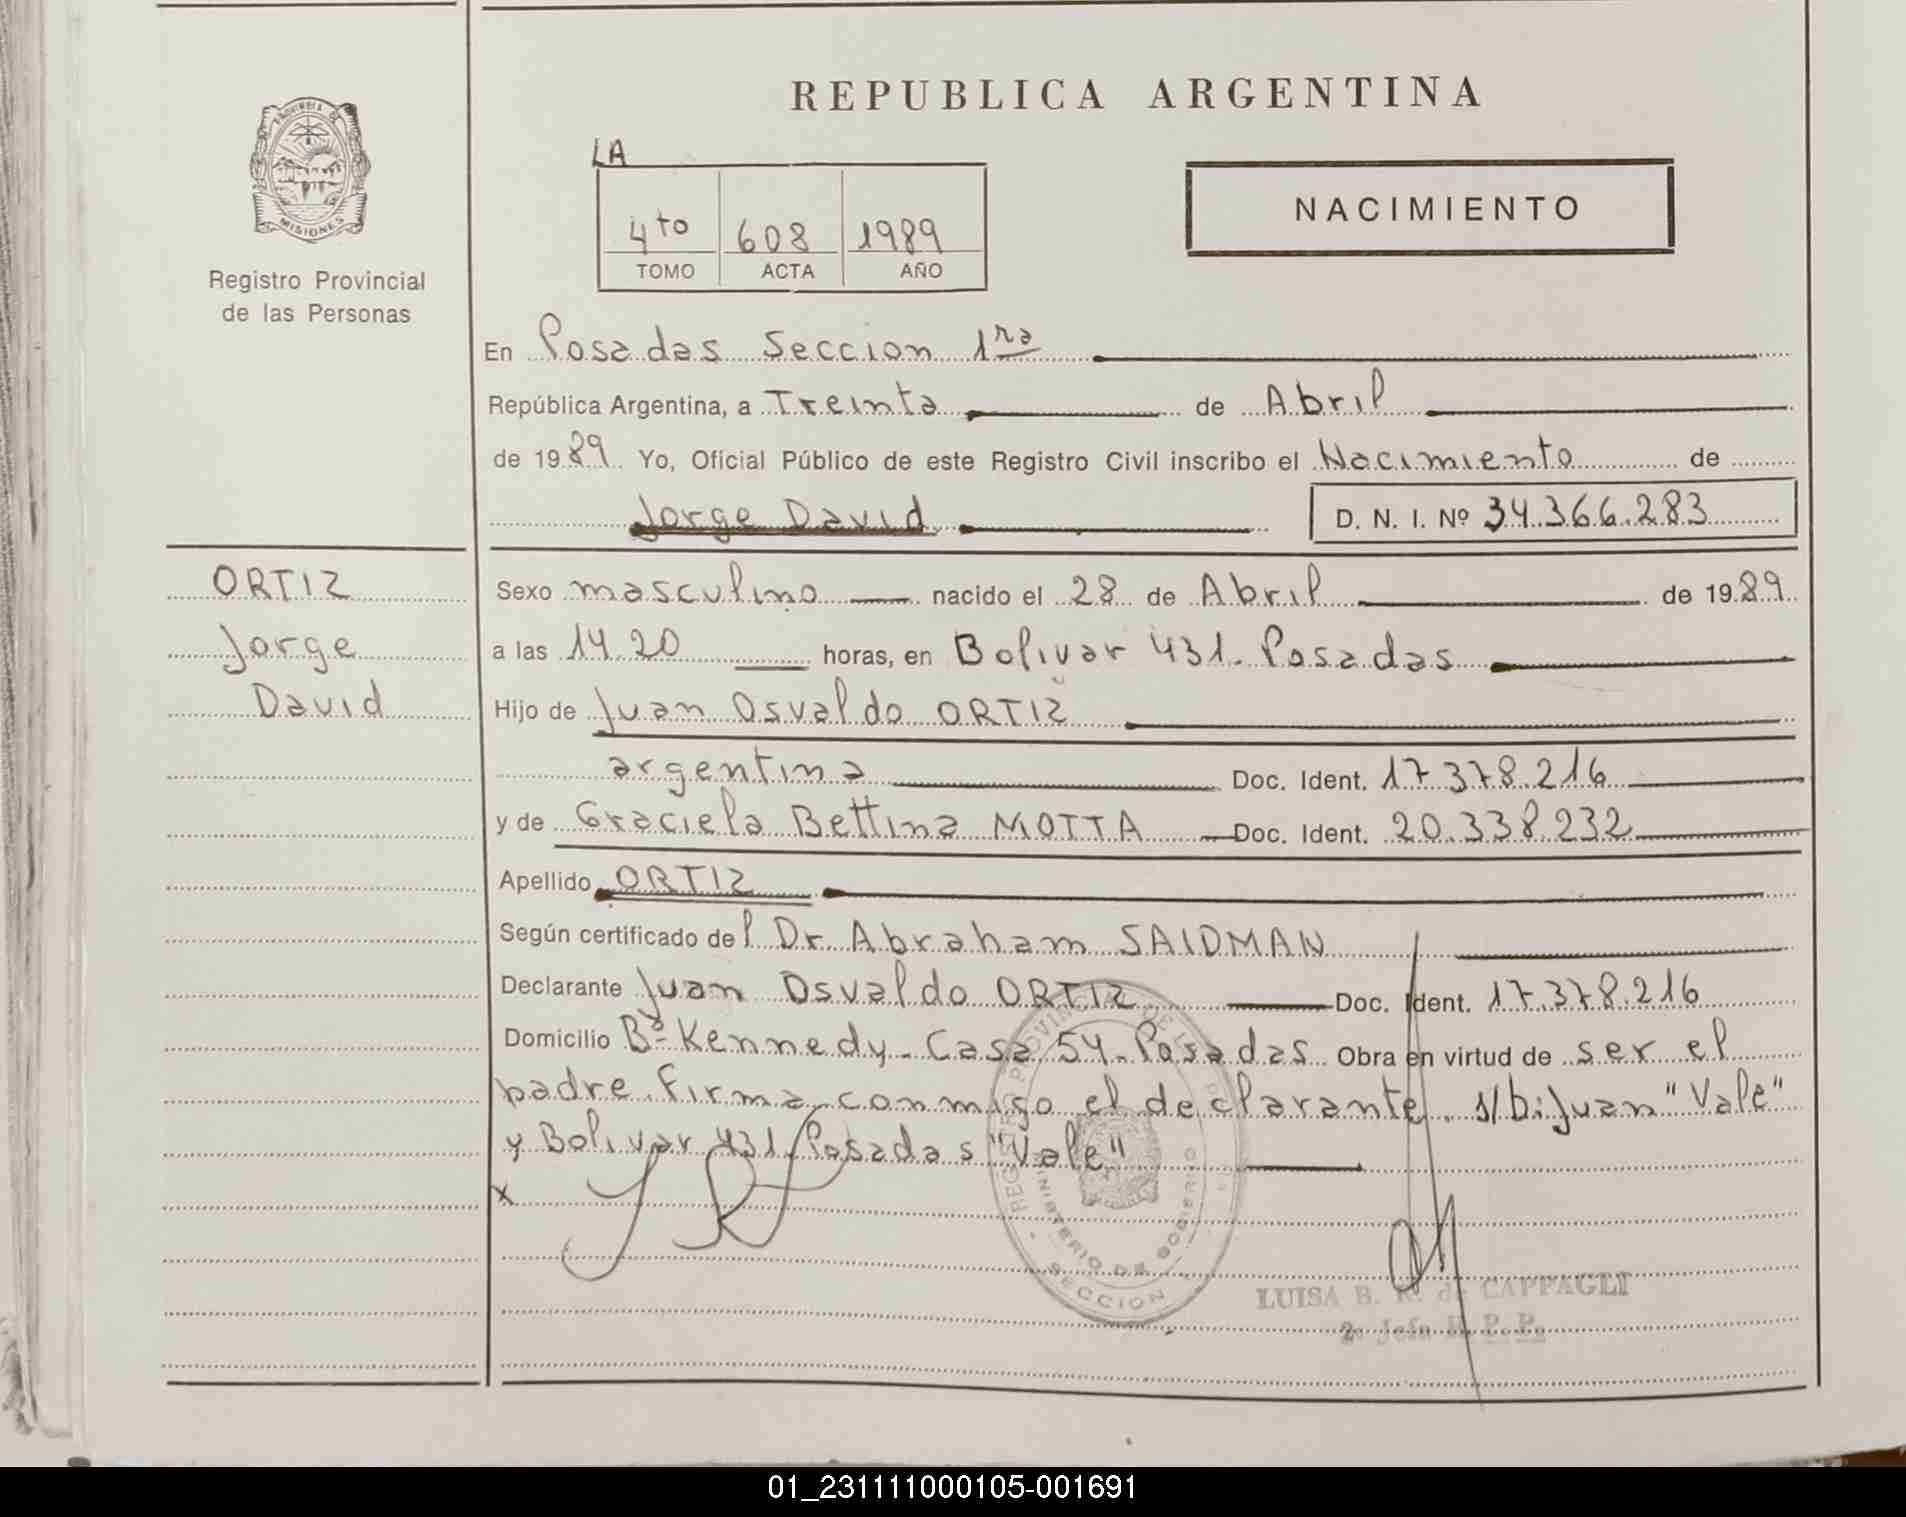 REPUBLICA ARGENTINA
LA
4to 608 1989
TOMO ACTA AÑO
NACIMIENTO
PROVINCIA DE
MISIONES
Registro Provincial
de las Personas
En Posadas Seccion 1ra
República Argentina, a Treinta de Abril
de 1989 Yo, Oficial Público de este Registro Civil inscribo el Nacimiento de
Jorge David D. N. I. Nº 34.366.283
ORTIZ
Jorge
David
Sexo masculino nacido el 28 de Abril de 1989
a las 14 20 horas, en Bolivar 431. Posadas
Hijo de Juan Osvaldo ORTIZ
argentina Doc. Ident. 17.378.216
y de Graciela Bettina MOTTA Doc. Ident. 20.338.232
Apellido ORTIZ
Según certificado del Dr. Abraham SAIDMAN
Declarante Juan Osvaldo ORTIZ Doc. Ident. 17.378.216
Domicilio Bº Kennedy - Casa 54 - Posadas Obra en virtud de ser el
padre. Firma conmigo el declarante. s/b: Juan "Vale"
y Bolivar 431. Posadas "Vale"
x
MINISTERIO DE GOBIERNO
SECCION
LUISA B. R. de CAPPAGLI
2º Jefe R. P. P.
01_231111000105-001691